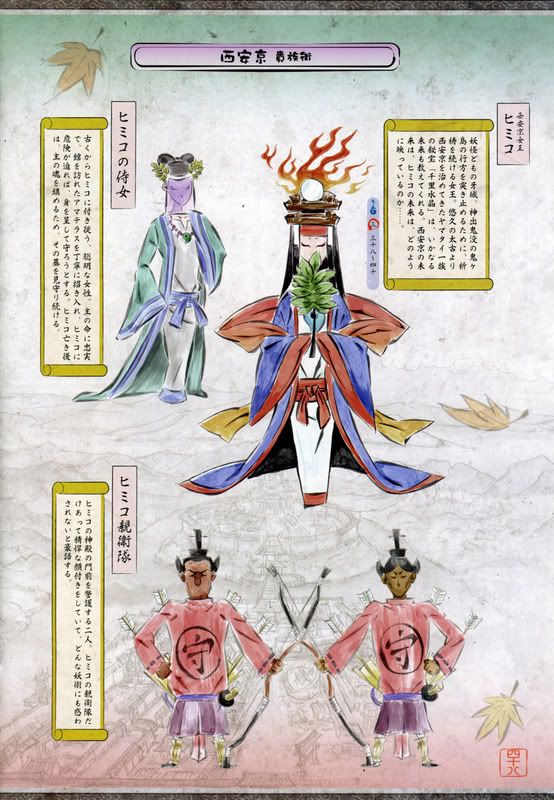 西安京 貴族街
西安京女王
ヒミコ
妖怪どもの牙城、神出鬼没の鬼ヶ
島の行方を突き止めるために、祈
祷を続ける女王。悠久の太古より
西安京を治めてきたヤマタイ一族
の秘宝「千里水晶」は、いかなる
未来も教えてくれる。西安京の未
来は、ヒミコの未来は、どのよう
に映っているのか……。
三十八〜四十
ヒミコの侍女
古くからヒミコに付き従う、聡明な女性。主の命に忠実
で、館を訪れたアマテラスを丁寧に招き入れ、ヒミコに
危険が迫れば、身を呈して守ろうとする。ヒミコ亡き後
は、主の魂を鎮めるため、その墓を見守り続ける。
ヒミコ親衛隊
ヒミコの神殿の門前を警護する二人。ヒミコの親衛隊だ
けあって精悍な顔付きをしていて、どんな妖術にも惑わ
されないと豪語する。
守
守
四十八